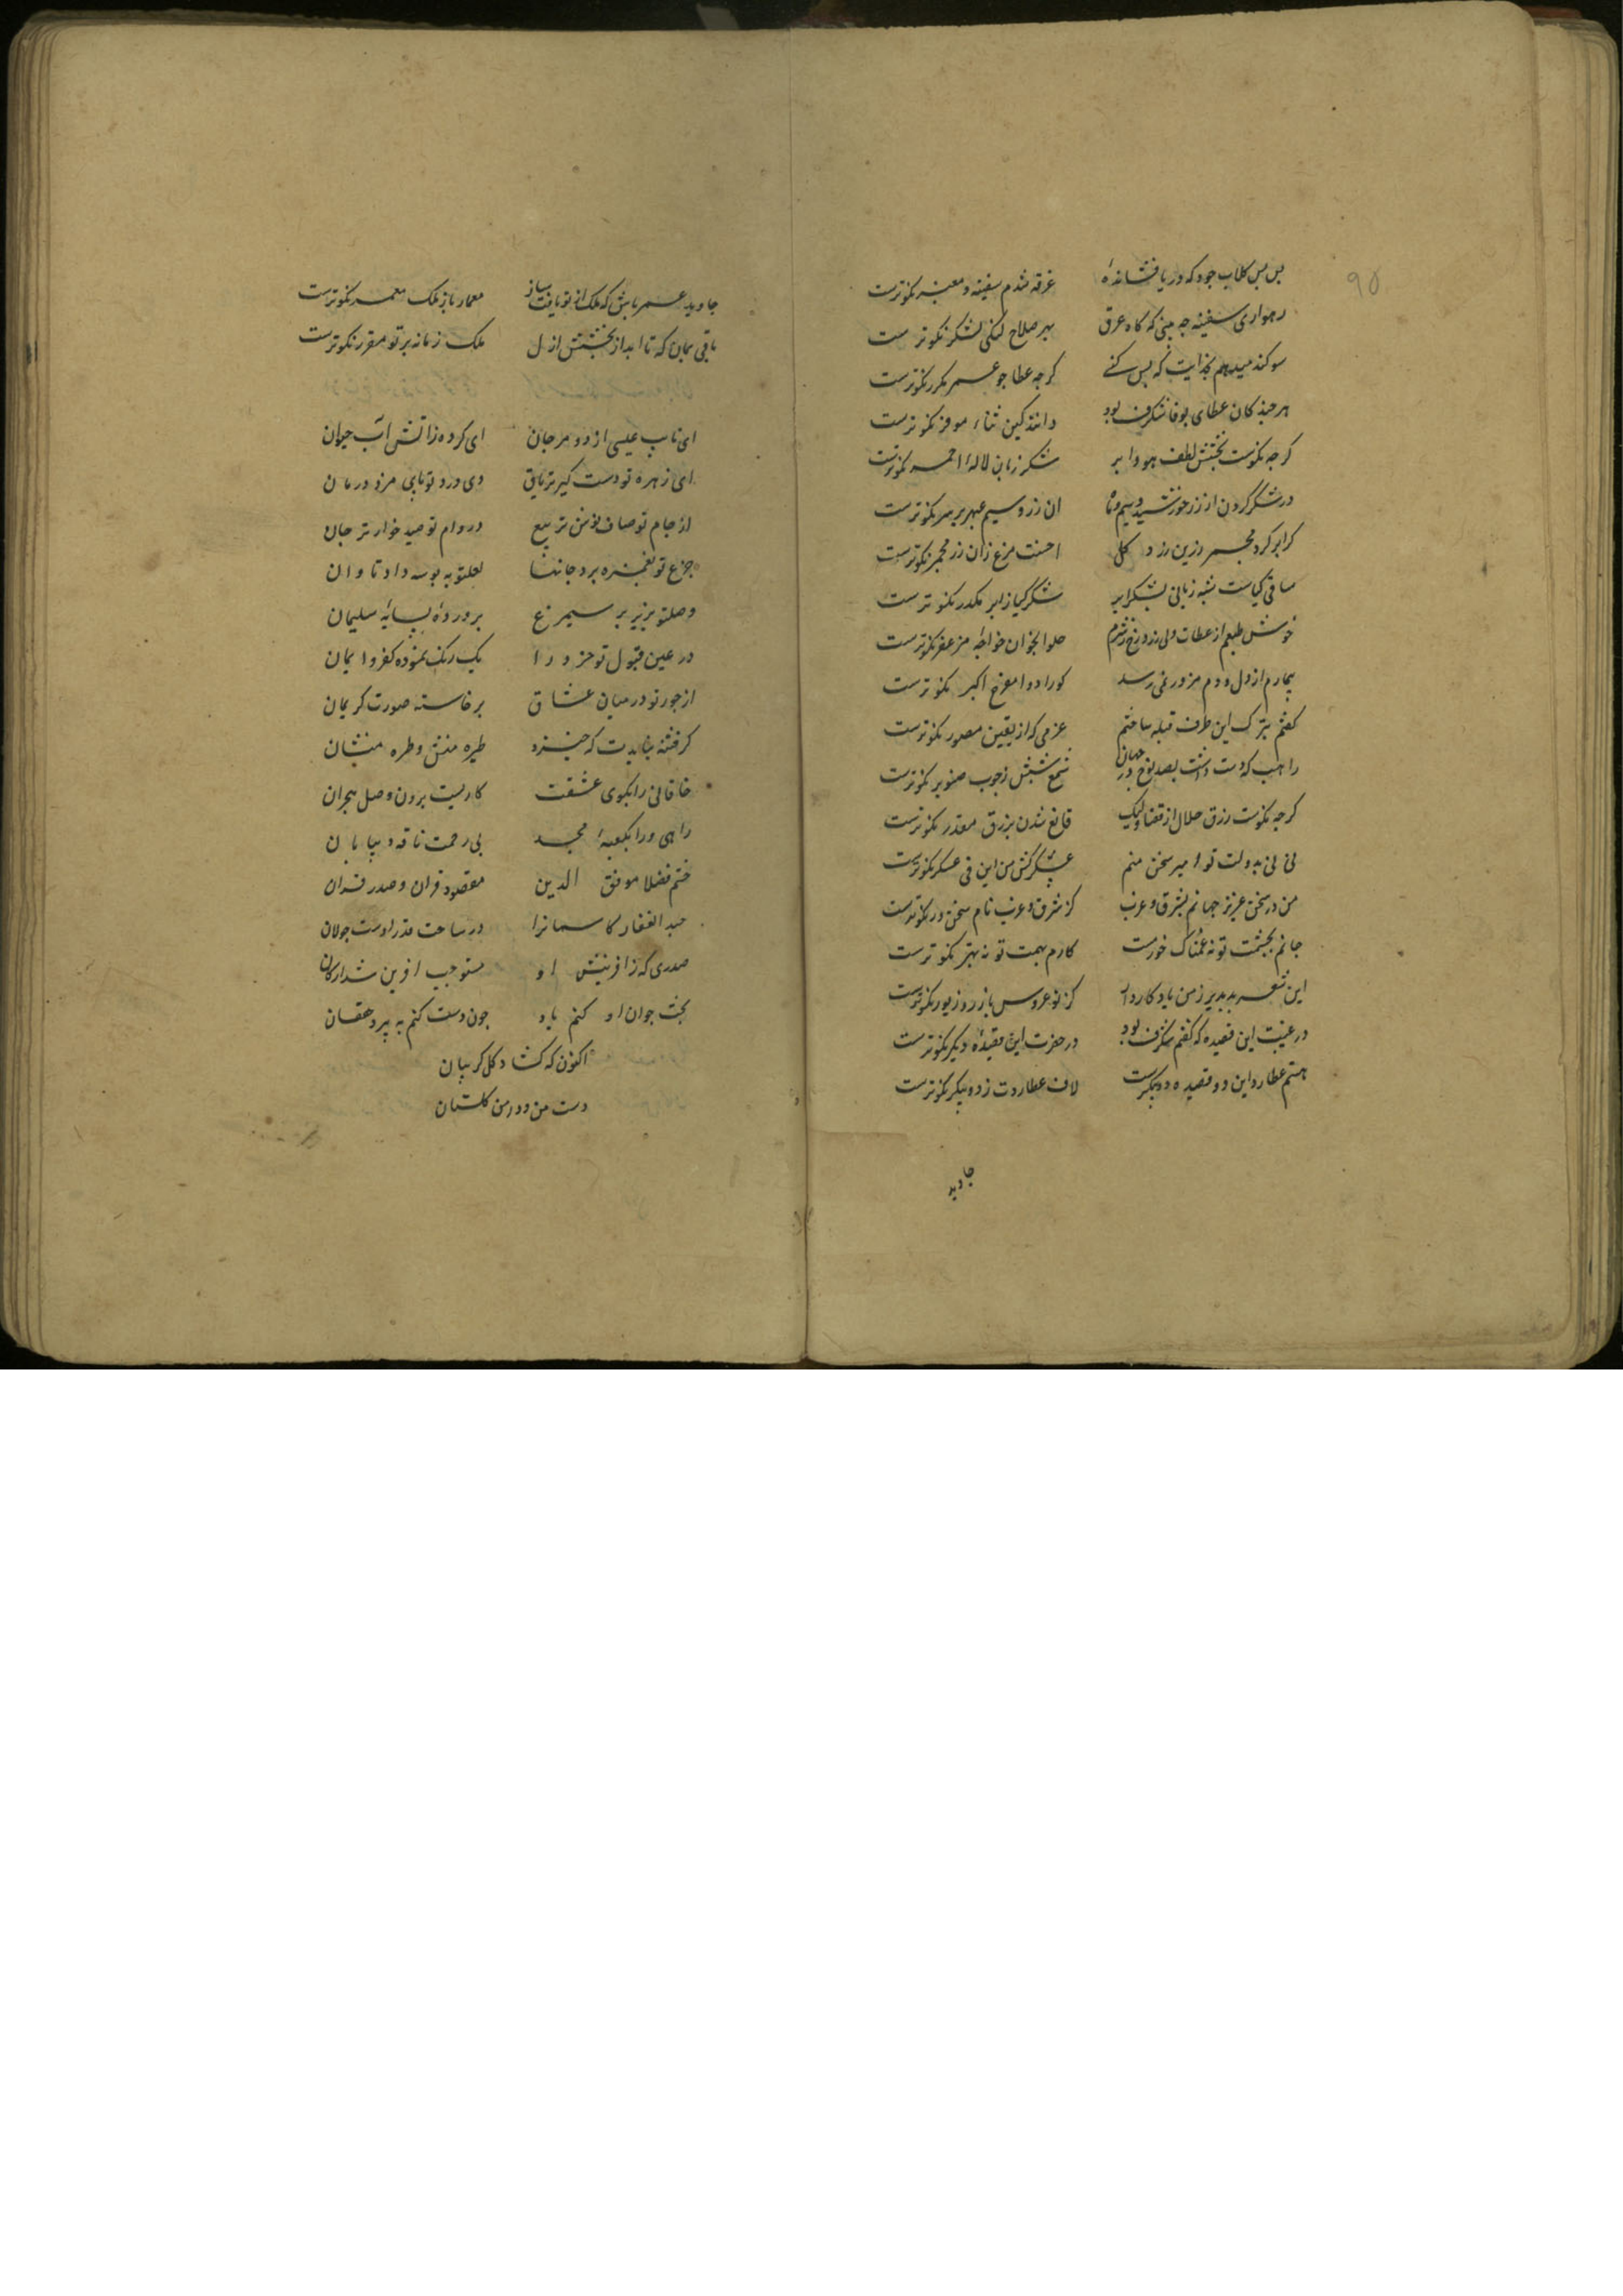 ۹۵
بس بس کلاب جود که دریا فشانده‌ٔ غرقه شدم سفینه و معبر نکوترست
رهواری سفینه چه بینی که گاه غرق بهر صلاح لنگی لنگر نکوترست
سوکند میدهم بخدایت که بس کنی کرچه عطا چو عمر مکرر نکوترست
هر چند کان عطای بوفا شکرف بود دانند کین ثناء موفر نکوترست
کرچه نکوست بخشش لطف هوا و ابر شکر زبان لالهٔ احمر نکوترست
در شکر کردن از زر خورشید و سیم ماه ان زر و سیم عبهر بر سر نکوترست
کر ابر کرد مجمر زرین ز ورد کل احسنت مرغ زان زر مجمر نکوترست
ساقی کیاست شبه زبانی بشکر ابر شکر کیا ز ابر مکدر نکوترست
خوش طبعم از عطات ولی زرد رخ ز شرم حلوا بخوان خواجه مزعفر نکوترست
بیمارم از دل و دم مزور نمی‌رسد کورا دوا مفرح اکبر نکوترست
کفتم بترک این طرف قبله ساختم عزمی که از یقین مصور نکوترست
راهب که دست داشت بصد نوع در جهان شمع شبش ز چوب صنوبر نکوترست
کرچه نکوست رزق حلال از قضا ولیک قانع شدن برزق مقدر نکوترست
نی نی بدولت تو امیر سخن منم عسکرکش من این نی عسکر نکوترست
من در سخن عزیز جهانم بشرق و غرب کز شرق و غرب نام سخنور نکوترست
جانم بحشمت تو نه غمناک خوشترست کارم بهمت تو نه بهتر نکوترست
این شعر بدیدیر ز من یادکار دار کز نو عروس با زر و زیور نکوترست
در غیبت این قصیده که کفتم شکرف بود در حضرت این قصیدهٔ دیکر نکوترست
هستم عطارد این دو قصیده دو پیکرست لاف عطاردت ز دو پیکر نکوترست
جاوید
جاوید عمر باش که ملک از تو یافت ساز معمار باز ملک معمر نکوترست
باقی بمان که تا ابد از بخشش ازل ملک زمانه بر تو مقرر نکوترست
ای نایب عیسی از دو مرجان ای کرده ز آتش آب حیوان
ای زهره تو دست کیر تریاق وی درد تو نایب مرد درمان
از جام تو صاف نوش تر تیغ در دام تو صید خوارتر جان
جزع تو بغمزه برد جانها لعلتو به بوسه داد تاوان
وصلتو بزیر بر سیمرغ پروردهٔ سایهٔ سلیمان
در عین قبول تو خرد را یک رنک نموده کفر و ایمان
از جور تو در میان عشاق برخاسته صورت کریبان
کر فتنه نبایدت که خیزد طیره منشین و طره منشان
خاقانی را بکوی عشقت کاریست برون وصل هجران
راهی ورا بکعبهٔ مجد بی زحمت ناقه و بیابان
ختم فضلا موفق الدین مقصود قران و صدر قران
عبد الغفار کاسمانرا در ساحت قدر اوست جولان
صدری که ز افرینش او مستوجب افرین شد ارکان
بخت جوان او کنم یاد چون وصف کنم به پیر دهقان
اکنون که کشاد کل کریبان
دست من و دامن کلستان